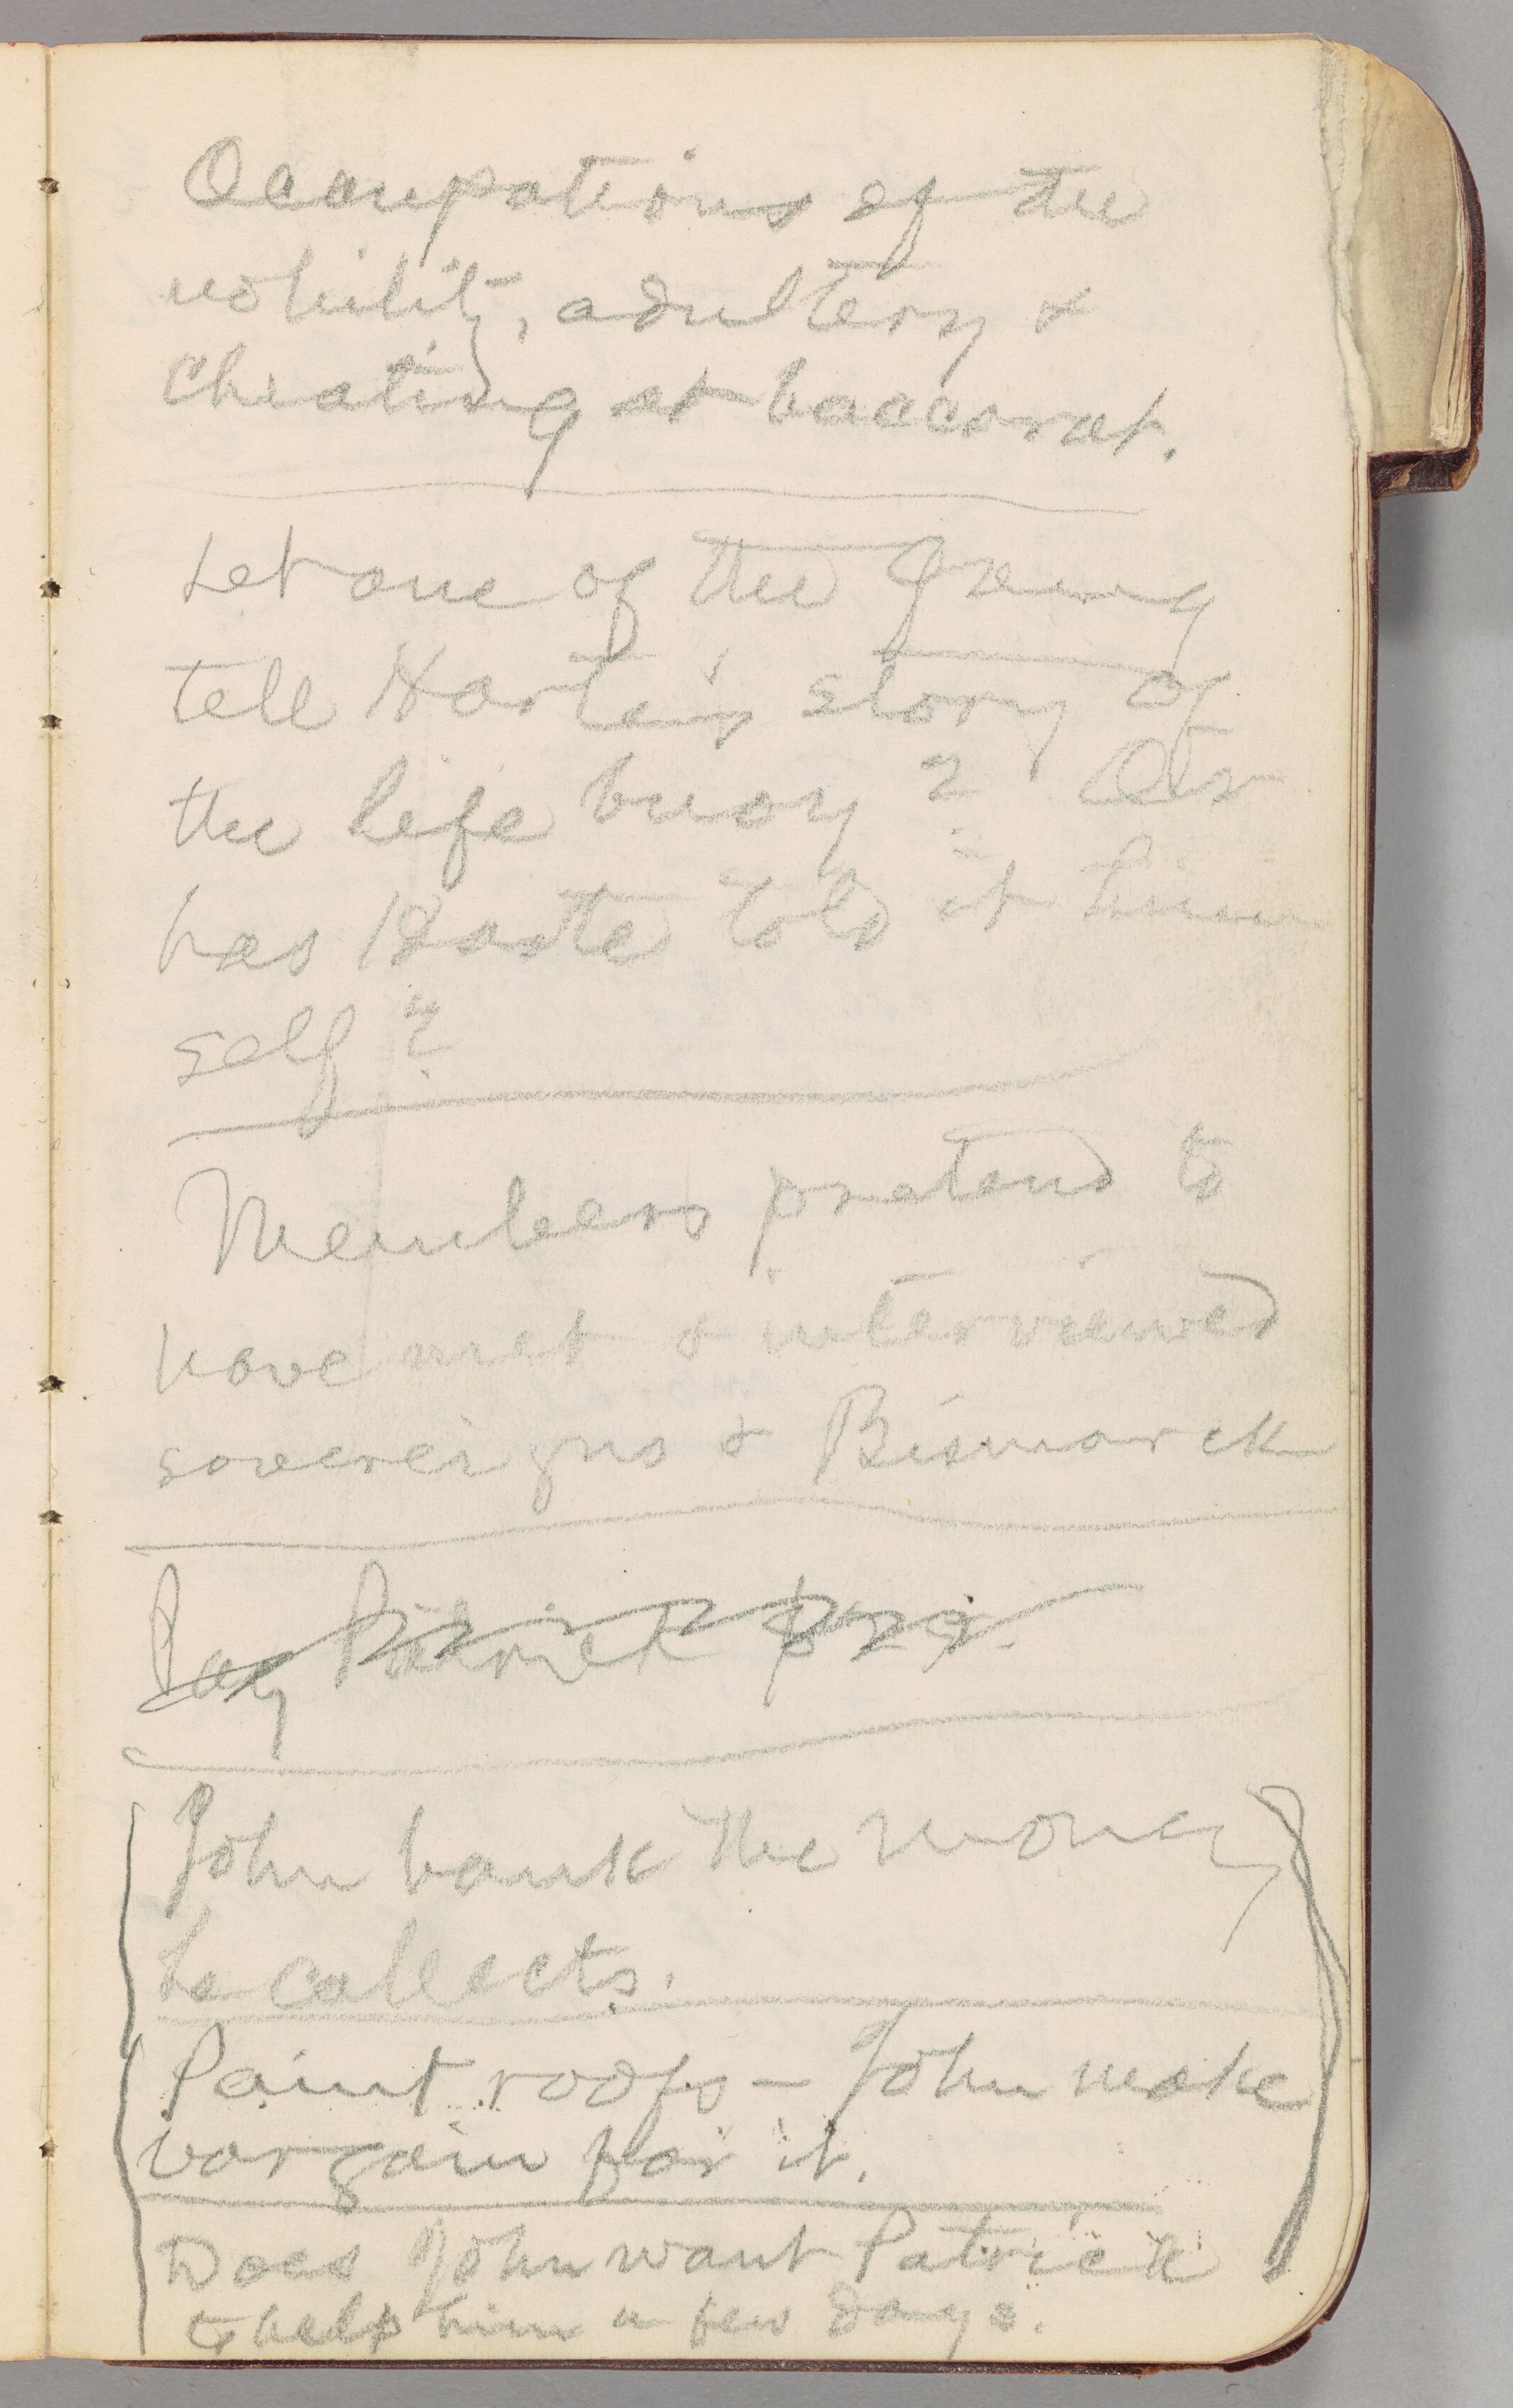 Occupations of the
nobility, adultery &
cheating at baccarat.
Let one of the
tell Harte's story of
the life buoy? Or
has Harte told it him
self?
Members pretend to
have met & interviewed
sovereigns & Bismarck
Pay Patrick
John bank the money
he collects.
Paint roofs — John make
bargain for it.
Does John want Patrick
to help him a few days.